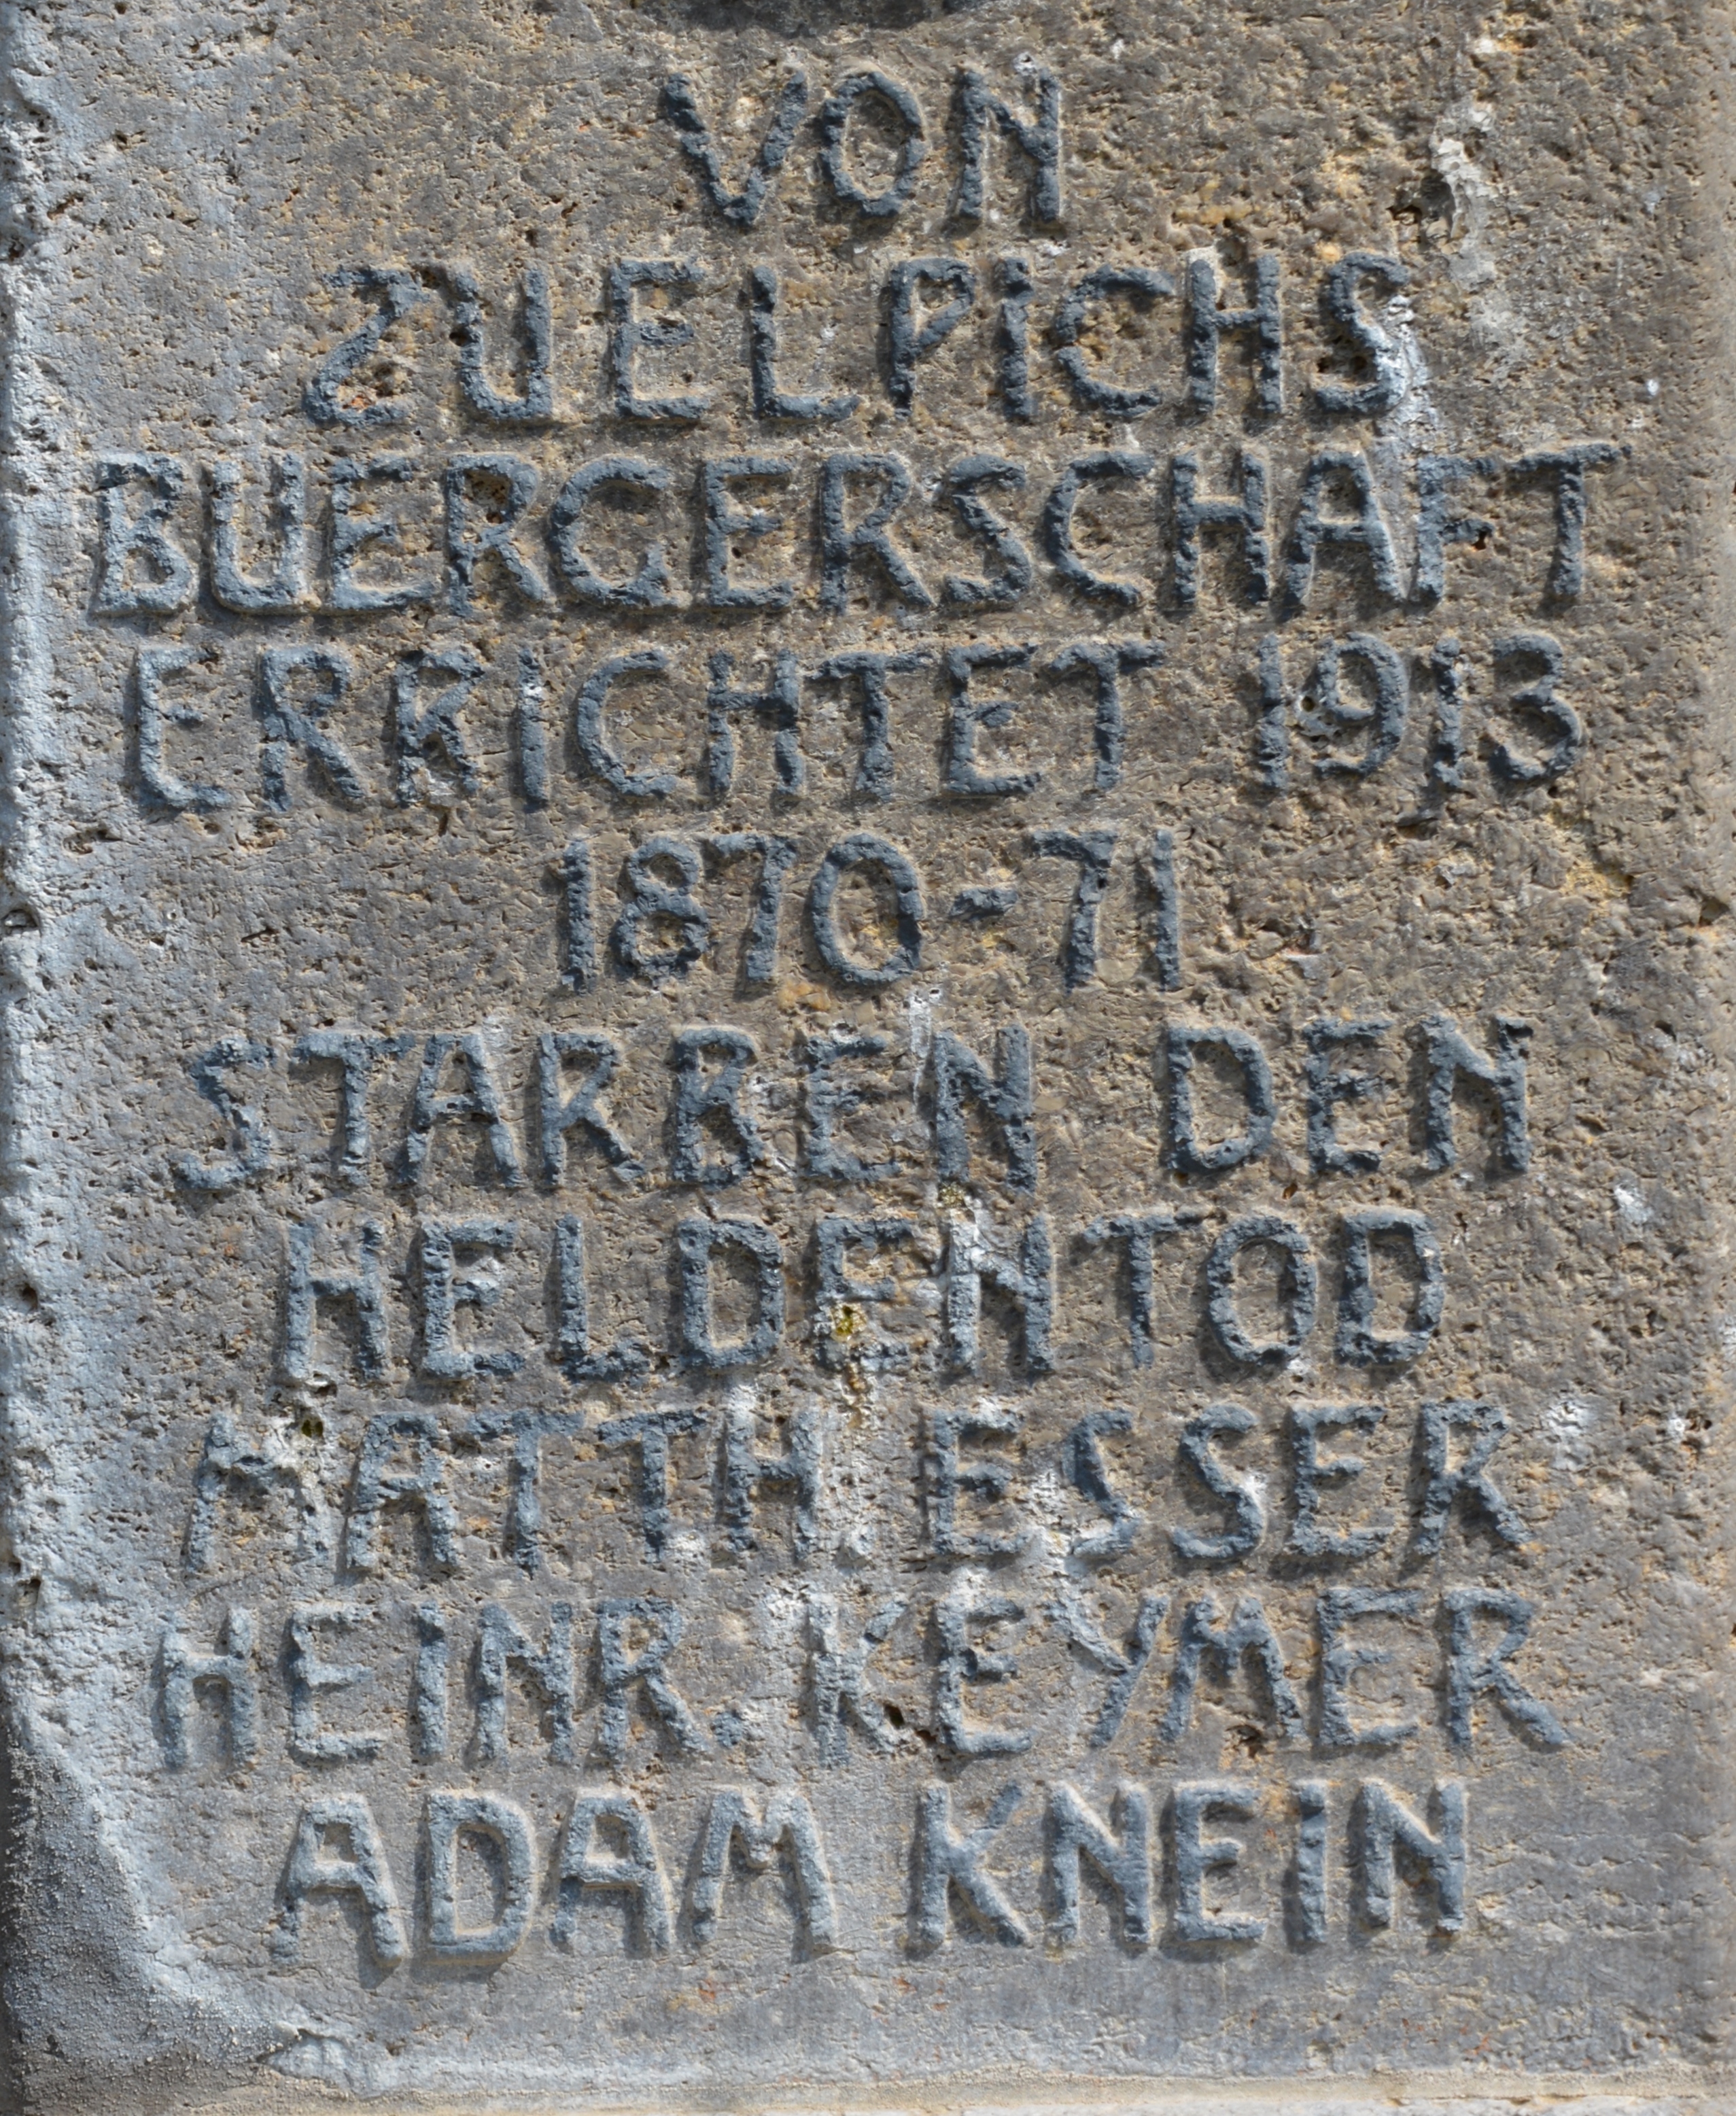 VON
ZUELPICHS
BUERGERSCHAFT
ERRICHTET 1913
1870-71
STARBEN DEN
HELDENTOD
MATTH ESSER
HEINR. KEYMER
ADAM KNEIN